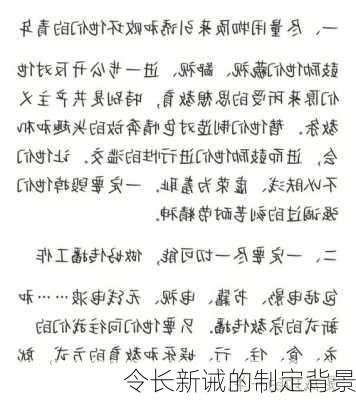 一、尽量用物质来引诱和败坏他们的青年
鼓励他们藐视、鄙视、进一步公开反对他
们原来所受的思想教育，特别是共产主义
教条。替他们制造对色情奔放的兴趣和机
会，进而鼓励他们进行性的滥交。让他们
不以肤浅、虚荣为羞耻。一定要毁掉他们
强调过的刻苦耐劳精神。
二、一定要尽一切可能，做好传播工作
包括电影、书籍、电视、无线电波……和
新式的宗教传播。只要他们向往我们的
衣、食、住、行、娱乐和教育的方式，就
令长新诫的制定背景